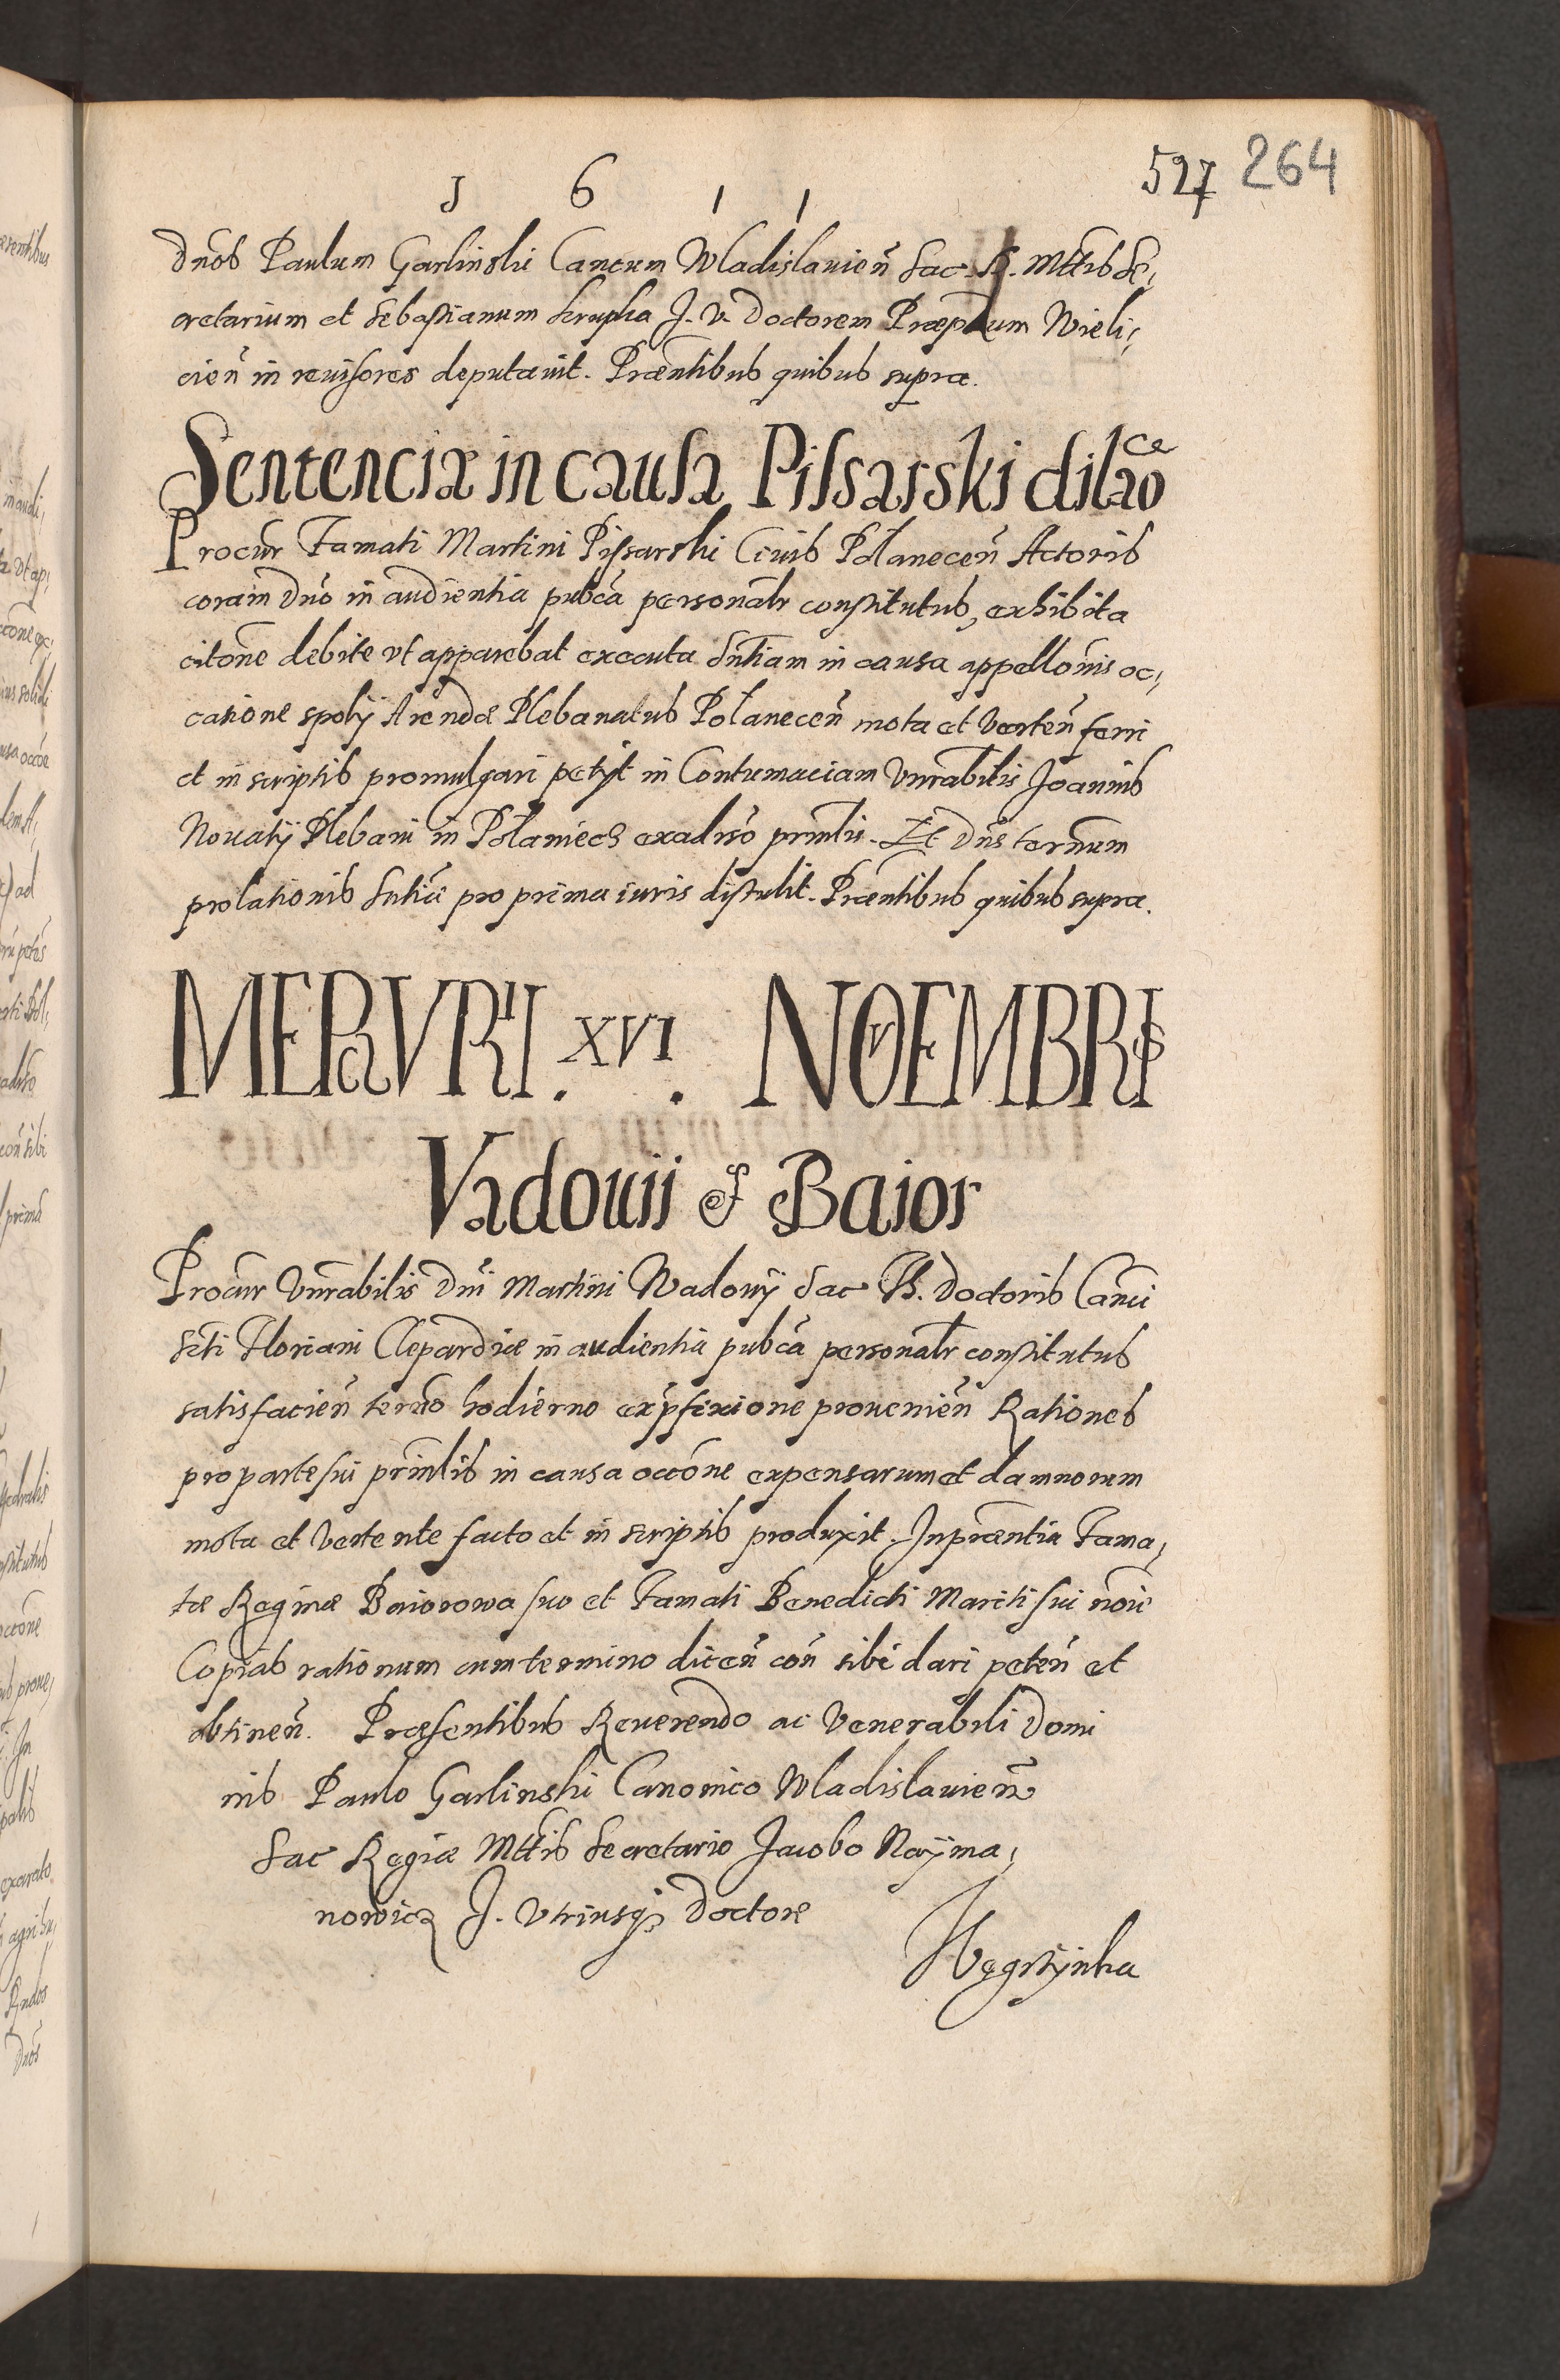 1 6 1 1
527 264
Dnos Paulum Garlinski Cancum Wladislauien̄ Sac. R. Mttis Se,
cretarium et Sebastianum Krupka J. V. Doctorem Præptum Wieli,
cien̄ in reuisores deputauit. Præntibus quibus supra.
Sentencia in causa Pissarski dilao ce
Procur Famati Martini Pissarski Ciuis Polanecen̄ Actoris
coram Dn̄o in audientia pubca personalr constitutus, exhibita
citone debite vt apparebat executa Sntiam in causa appellonis oc,
casione spolij Arendæ Plebanatus Polanecen̄ mota et Verten̄ ferri
et in scriptis promulgari petijt in Contumaciam Vnrabilis Joannis
Nouatij Plebani in Polaniecz exaduso prinlis. Et Dns termnum
prolationis Sntiæ pro prima iuris distulit. Præntibus quibus supra.
MERCVRII . XVI . NOVEMBRIS
Vadouii et Baior
Procur Vnrabilis Dni Martini Wadouij Sac Th. Doctoris Canci
Scti Floriani Clepardiæ in audientia pubca personalr constitutus
satisfacien̄ termo hodierno ex præfixione prouenien̄ Rationes
pro parte sui prinlis in causa occone expensarum et damnorum
mota et Vertente facto et in scriptis produxit. In præntia Fama,
tæ Reginæ Baiorowa suo et Famati Benedicti Mariti sui noie
Copias rationum cum termino dicen̄ con̄ sibi dari peten̄ et
obtinen̄. Præsentibus Reuerendo ac Venerabili Domi
nis Paulo Garlinski Canonico Wladislauien̄
Sac Regiæ Mttis Secretario Jacobo Naÿma,
nowicz J. Vtriusq; Doctore
Węgrzynka